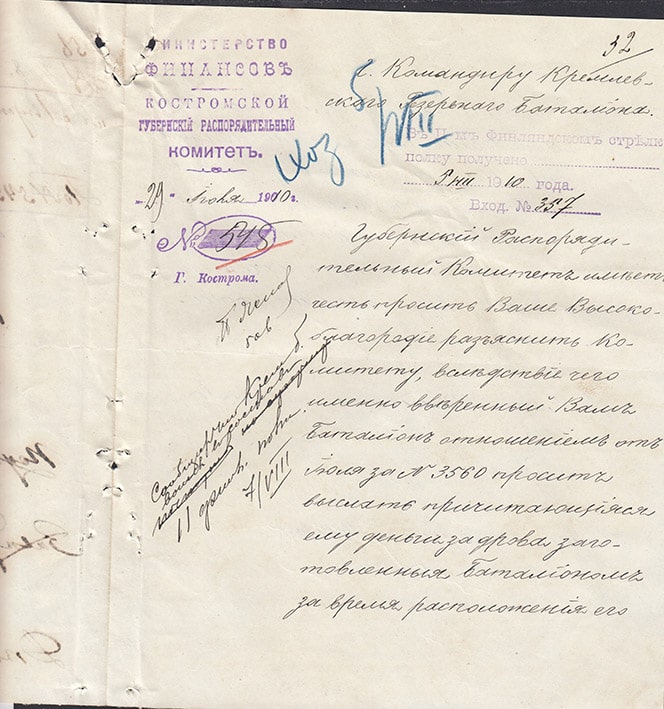 32
МИНИСТЕРСТВО
ФИНАНСОВЪ
КОСТРОМСКОЙ
ГУБЕРНСКІЙ РАСПОРЯДИТЕЛЬНЫЙ
КОМИТЕТЪ.
"29" Іюля 1910 г.
№ 548
Г. Кострома.
хоз
5/VIII
г. Командиру Кремлев-
скаго Резервнаго Баталіона.
Въ Финляндскомъ стрѣлк
полку получено
5 VIII 1910 года.
Вход. № 357
Губернскій Распоряди-
тельный Комитетъ имѣетъ
честь просить Ваше Высоко-
благородіе разъяснить Ко-
митету, вслѣдствіе чего
именно ввѣренный Вамъ
Баталіонъ отношеніемъ отъ
Іюля за № 3560 проситъ
выслать причитающіяся
ему деньги за дрова заго-
товленныя Баталіономъ
за время расположенія его
11 финл. полк.
7/VIII